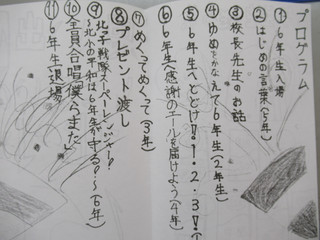 プログラム
① 6年生入場
② はじめの言葉(5年)
③ 校長先生のお話
④ ゆめをかなえて6年生(2年生)
⑤ 6年生へとどけ!!1・2・3!(1年生)
⑥ 6年生へ感謝のエールを届けよう(4年)
⑦ めくってめくって(3年)
⑧ プレゼント渡し
⑨ 北っ子戦隊スペーレンジャー!
~北小の平和は6年生が守る?~(6年)
⑩ 全員合唱「僕らまた」
⑪ 6年生退場